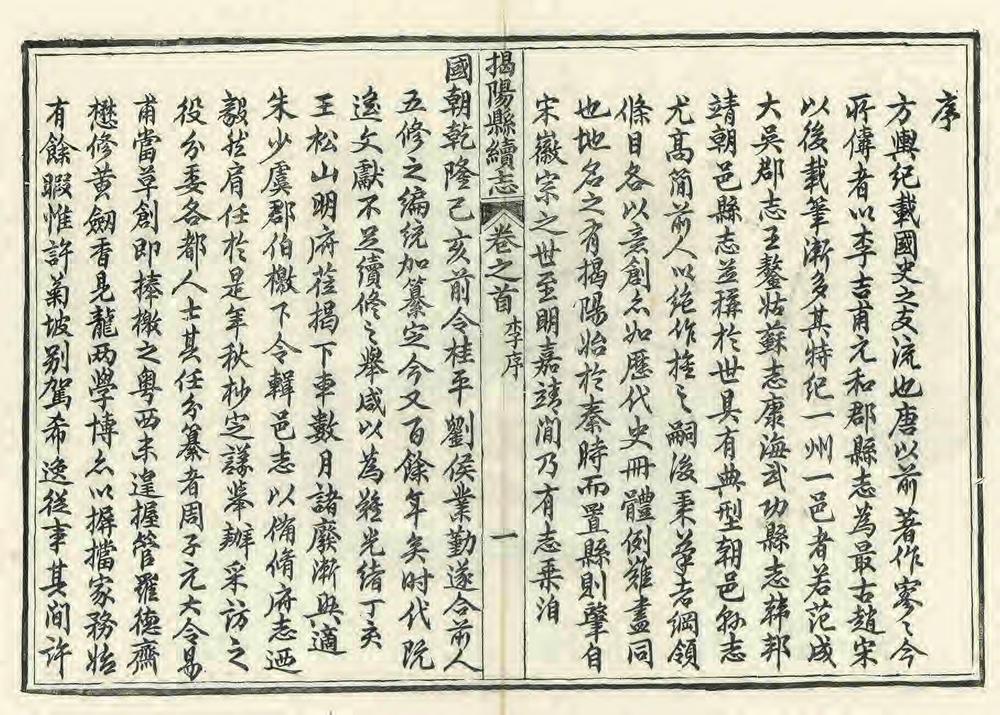 序
方輿紀載國史之支流也唐以前著作寥〻今
所傳者以李吉甫元和郡縣志為最古趙宋
以後載筆漸多其特紀一州一邑者若范成
大吳郡志王鏊姑蘇志康海武功縣志韓邦
靖朝邑縣志並稱於世具有典型朝邑縣志
尤高簡前人以絕作推之嗣後秉筆者綱領
條目各以意創亦如歷代史冊體例難盡同
也地名之有揭陽始於秦時而置縣則肇自
宋徽宗之世至明嘉靖間乃有志乘洎
揭陽縣續志 卷之首 李序 一
國朝乾隆己亥前令桂平劉侯業勤遂合前人
五修之編統加纂定今又百餘年矣時代既
遙文獻不足續修之舉咸以為難光緒丁亥
王松山明府蒞揭下車數月諸廢漸興適
朱少虞郡伯檄下令輯邑志以備脩府志迺
毅然肩任於是年秋杪定議舉辦采訪之
役分委各都人士其任分纂者周子元大令易
甫當草創即捧檄之粵西未遑握管羅德齋
懋修黃劒香見龍兩學博亦以摒擋家務始
有餘暇惟許菊坡別駕希逸從事其間許